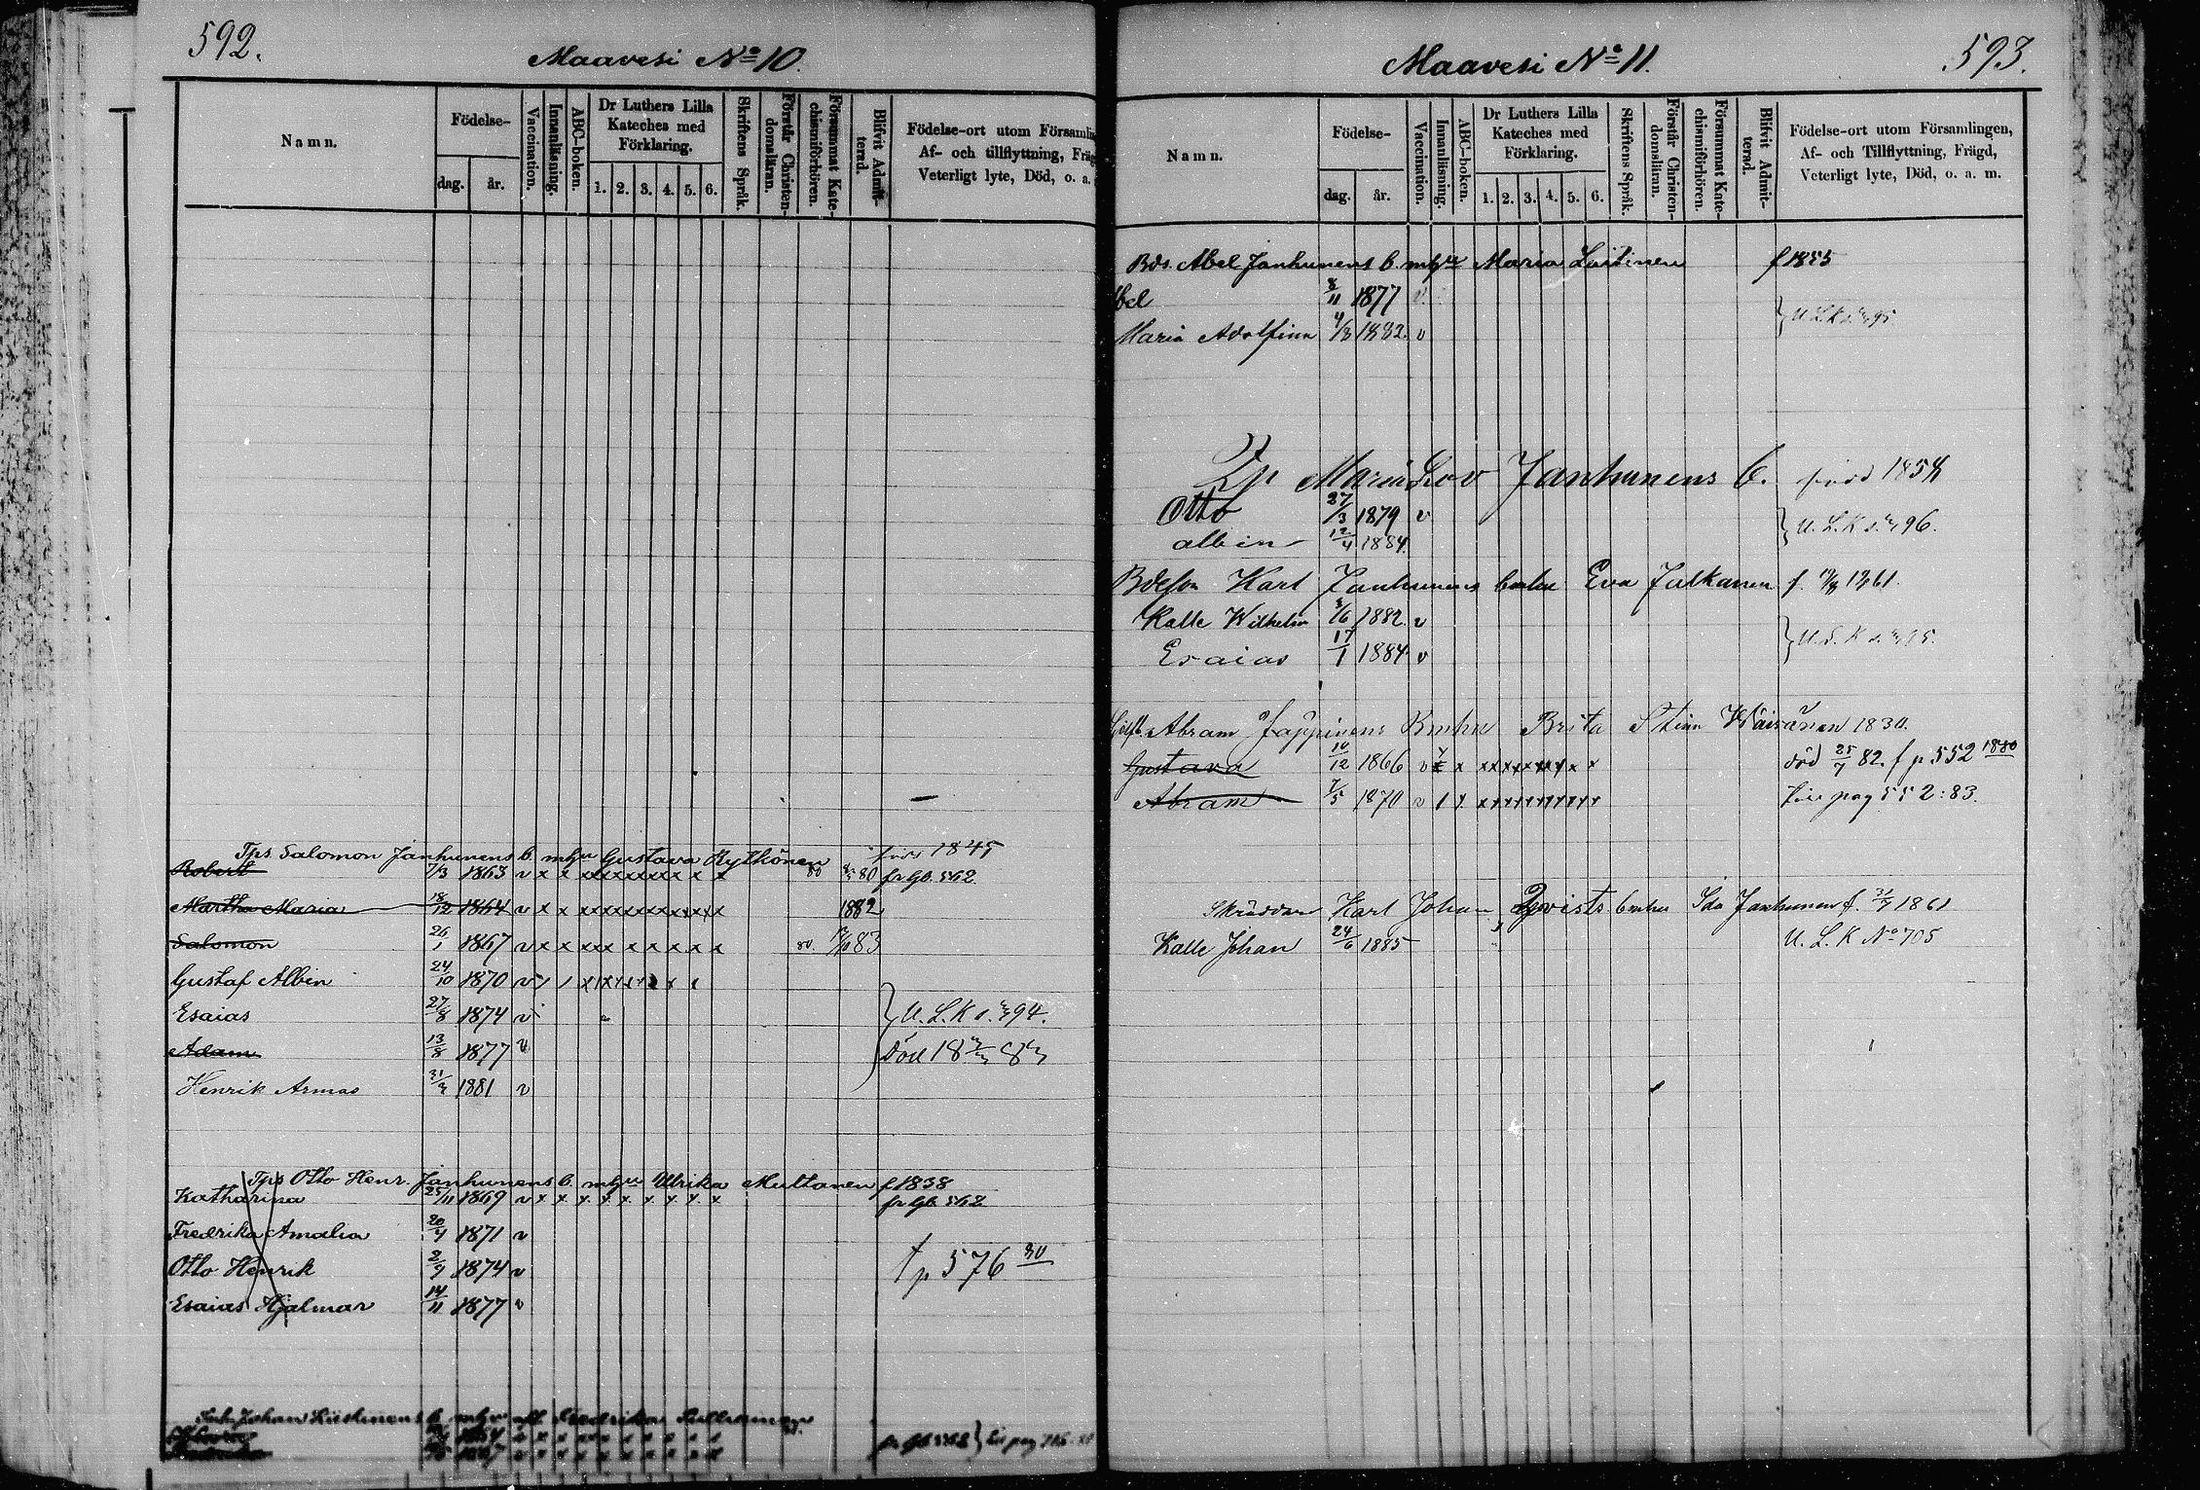 592.
Maavesi No 10.
Namn.
Födelse-
dag. år.
Vaccination.
Innanläsning.
ABC-boken.
Dr Luthers Lilla
Kateches med
Förklaring.
1. 2. 3. 4. 5. 6.
Skriftens Språk.
Förstår Christen-
domsläran.
Försummat Kate-
chismiförhören.
Blifvit Admit-
terad.
Födelse-ort utom Församlin
Af- och tillflyttning, Fräg
Veterligt lyte, Död, o. a.
Tps. Salomon Janhunens b. mhu Gustava Rythönen född 1845
Robert 7/3 1863 v x x x x x x x x x x x 80 80 fr gb. 562.
Martha Maria 18/12 1864 v x x x x x x x x x x x 1882
Salomon 26/1 1867 v x x x x x x x x x 80. 83
Gustaf Albin 24/10 1870 v
Esaias 27/8 1874 v U. L. K s. 94.
Adam 13/8 1877 v Död 18
Henrik Armas 31/3 1881 v
Tps Otto Henr. Janhunens b. mhu Ulrika Multanen f 1838
Katharina 25/11 1869 v x x x x x x x x x fr gb. 562
Fredrika Amalia 20/4 1871 v
Otto Henrik 2/9 1874 v † p 576 80
Esaias Hjalmar 14/11 1877 v
Johan b. mhu Fredrika
593.
Maavesi No 11.
Namn.
Födelse-
dag. år.
Vaccination.
Innanläsning.
ABC-boken.
Dr Luthers Lilla
Kateches med
Förklaring.
1. 2. 3. 4. 5. 6.
Skriftens Språk.
Förstår Christen-
domsläran.
Försummat Kate-
chismiförhören.
Blifvit Admit-
terad.
Födelse-ort utom Församlingen,
Af- och Tillflyttning, Frägd,
Veterligt lyte, Död, o. a. m.
Bds. Abel Janhunens b. mhu Maria Laitinen f 1855
bel 8/11 1877 v
Maria Adolfina 4/8 1882. v U. L. K s. 95
Maria Lov Janhunens b. född 1854
Otto 27/3 1879 v U. L. K s. 96.
Albin 12/4 1884.
Bdeson Karl Janhunens bmhu Eva Jalkanen f. 1861.
Kalle Wilhelm /6 1882. v
Esaias 17/1 1884 v
Abram Jäppinens Bmhu Brita Stina Wäisänen 1830.
Gustava 14/12 1866 v x x x x x x x x x x död 25/7 82. f p 552 1880
Abram 7/5 1870 v pag 552: 83.
Skräddar Karl Johan Qvists bmhu Ida Janhunen f. 31/7 1861
Kalle Johan 24/6 1885 U. L. K No 705